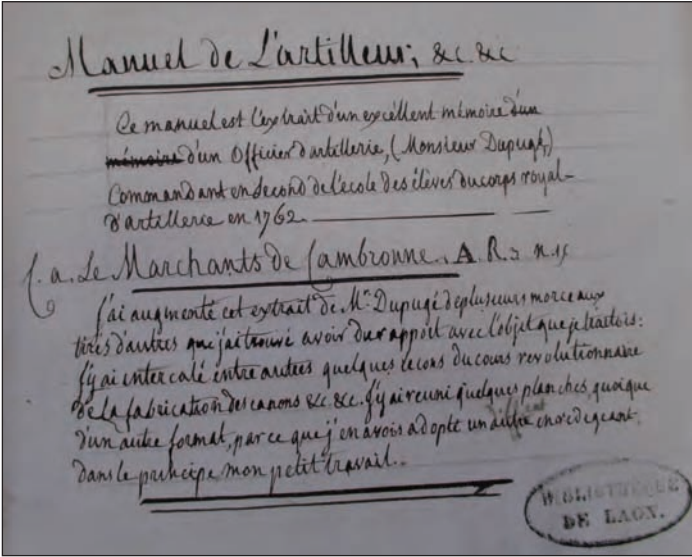 Manuel de L'artilleur; &c. &c
Ce manuel est l'extrait d'un excéllent mémoire d'un
mémoire d'un Officier d'artillerie, (Monsieur Dupugé,)
Commandant en Second de l'école des éleves du corps royal-
d'artillerie en 1762.
f. a. Le Marchants de Cambronne. A. R.
j'ai augmenté cet extrait de Mr. Dupugé de plusieurs morceaux
tirés d'autres que j'ai trouvé avoir du rapport avec l'objet que je traitois:
j'y ai intercalé entre autres quelques leçons du cours revolutionnaire
de La fabrication des canons &c. &c. j'y ai reuni quelques planches, quoique
d'un autre format, parce que j'en avois adopté un en redigeant
dans le principe mon petit travail.
BIBLIOTHEQUE
DE LAON.